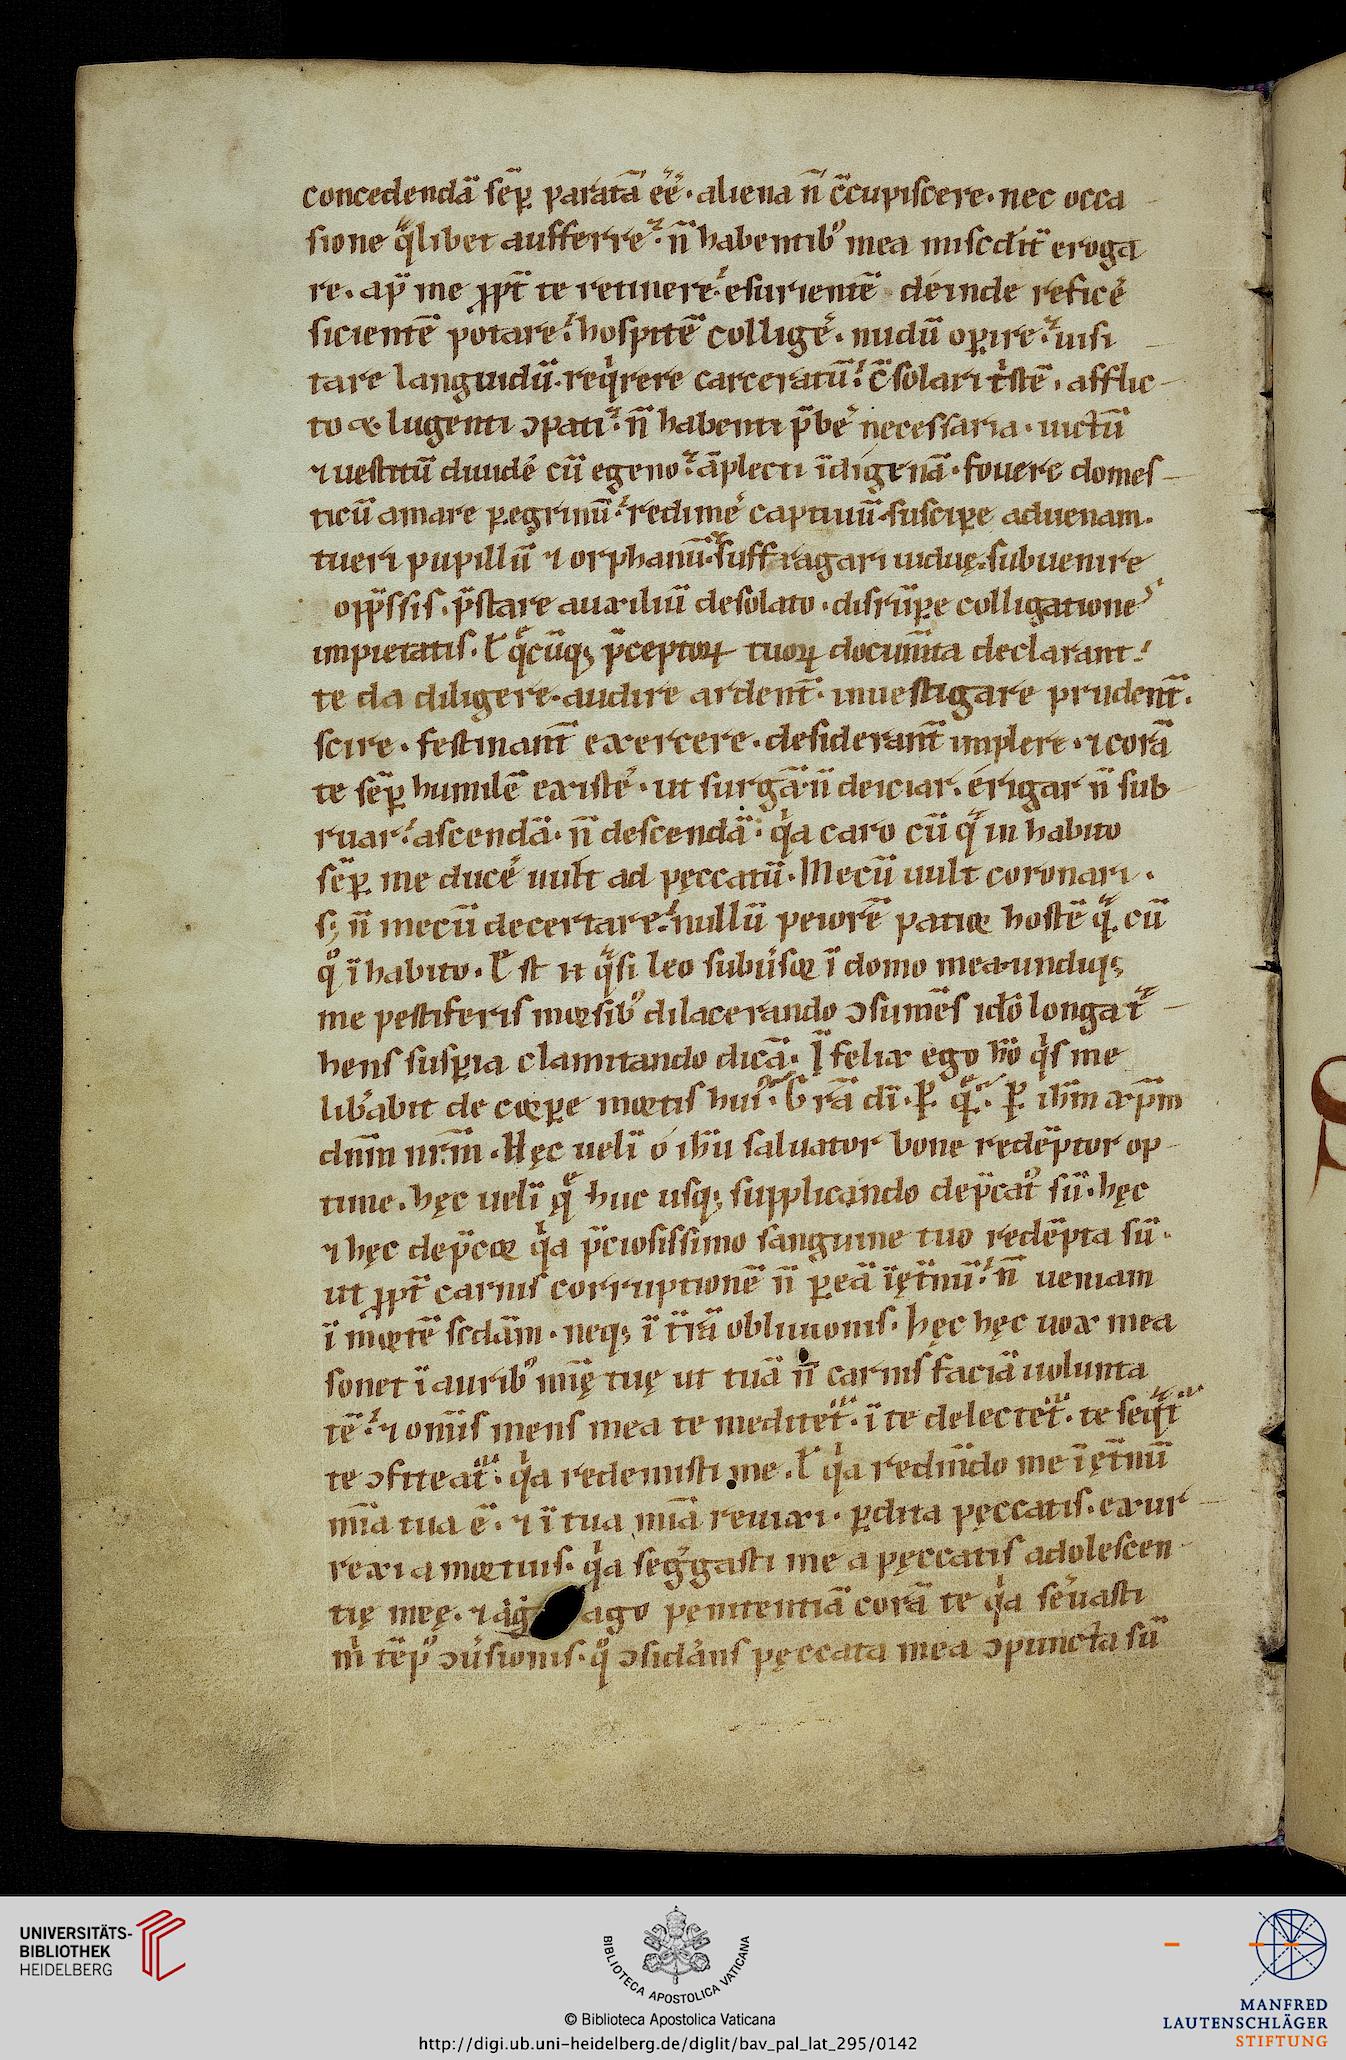 concedendā sēp paratā ēē · aliena n̄ c̄cupiscere · nec occa
sione q̄libet aufferre · n̄ habentib⁊ mea misc̄dit̄ eroga
re · ap̄ me ꝓpt̄ te retinere · esurientē deinde reficē
sicientē potare · hospitē colligē · nudū oꝑire · uisi
tare languidū · reqͥrere carceratū · c̄solari tͥstē · afflic
to & lugenti ɔpati · n̄ habenti p̄bē necessaria · uictū
⁊ uestitū diuidē cū egeno · āplecti īdigenā · fouere domes
ticū amare ꝑegrinū · redimē captiuū · suscipe aduenam ·
tueri pupillū ⁊ orphanū · suffragari uiduę · subuenire
opp̄ssis · p̄stare auxiliū desolato · disrūpe colligatione
impietatis · ł q̄cūq; p̄ceptoꝝ tuoꝝ docum̄ta declarant ·
te da diligere · audire ardent̄ · inuestigare prudent̄ ·
scire · festinant̄ exercere · desiderant̄ implere · ⁊ corā
te sēp humilē existē · ut surgā · n̄ deiciar · erigar n̄ sub
ruar · ascendā · n̄ descendā · qͥa caro cū q̄ in habito
sēp me ducē uult ad pęccatū · Mecū uult coronari ·
s; n̄ mecū decertare · nullū peiorē patior hostē q̄ · cū
qͦ ī habito · ł st ⁊t qͣsi leo subūsor ī domo mea · undiq;
me pestiferis morsib⁊ dilacerando ɔsumēs idō longa t̄
hens suspiria clamitando dicā · Īfelix ego hō qͥs me
lib̄abit de corpe mortis huī · Gr̄a dī · ꝑ q̄ · ꝑ ih̄m xp̄m
dn̄m nr̄m · Hęc uelī o ih̄u saluator bone redēptor op
time · hęc uelī q̄ huc usq; supplicando dep̄cat sū · hęc
⁊ hęc dep̄cor qͥa p̄ciosissimo sanguine tuo redēpta sū ·
ut ꝓpt̄ carnis corruptionē n̄ ꝑeā īęt̄nū · n̄ ueniam
ī mortē sc̄dam · neq; ī t̄rā obliuionis · hęc hęc uox mea
sonet ī aurib⁊ mię tuę ut tuā n̄ carnis faciā uolunta
tē · ⁊ om̄is mens mea te meditet̄ · ī te delectet̄ · te seqͣt̄
te ɔfiteat̄ · qͥa redemisti me · ł qͥa redim̄do me īęt̄nū
mīa tua ē · ⁊ ī tua mīa reuixi · ꝑdita pęccatis · exur
rexi a mortuis · qͥa seg̓gasti me a pęccatis adolescen
tię meę · ⁊ ag ago pęnitentiā corā te qͥa sēuasti
m̄ tēp⁊ ɔūsionis · qͦ ɔsid̓ans pęccata mea ɔpuncta sū
UNIVERSITÄTS-
BIBLIOTHEK
HEIDELBERG
BIBLIOTECA APOSTOLICA VATICANA
© Biblioteca Apostolica Vaticana
http://digi.ub.uni-heidelberg.de/diglit/bav_pal_lat_295/0142
MANFRED
LAUTENSCHLÄGER
STIFTUNG